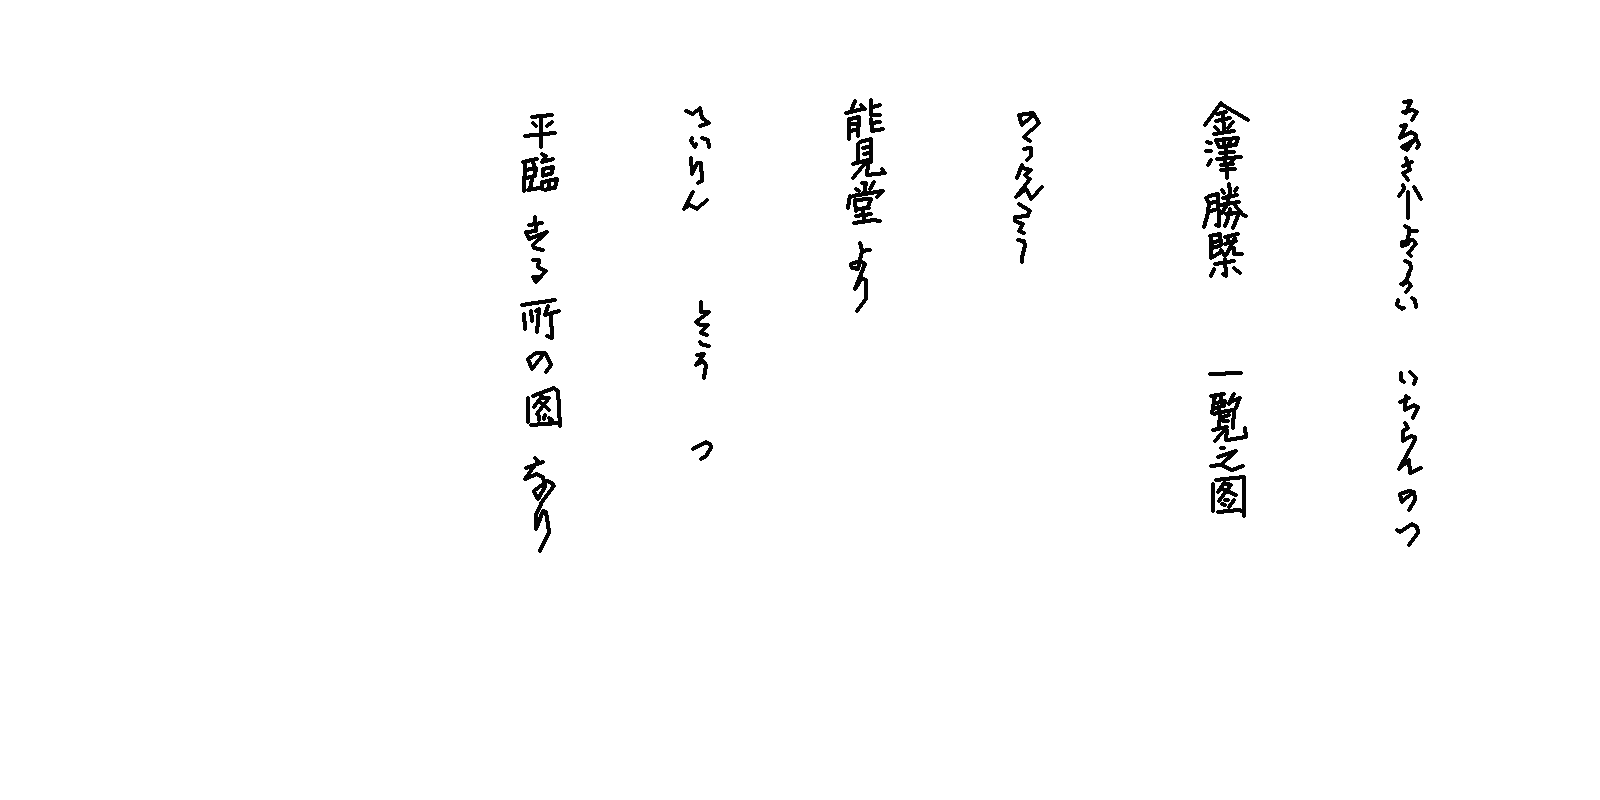 かなさハしようかい いちらんのつ
金澤勝槩 一覧之図
のうけんとう
能見堂より
へいりん ところ つ
平臨する所の図なり